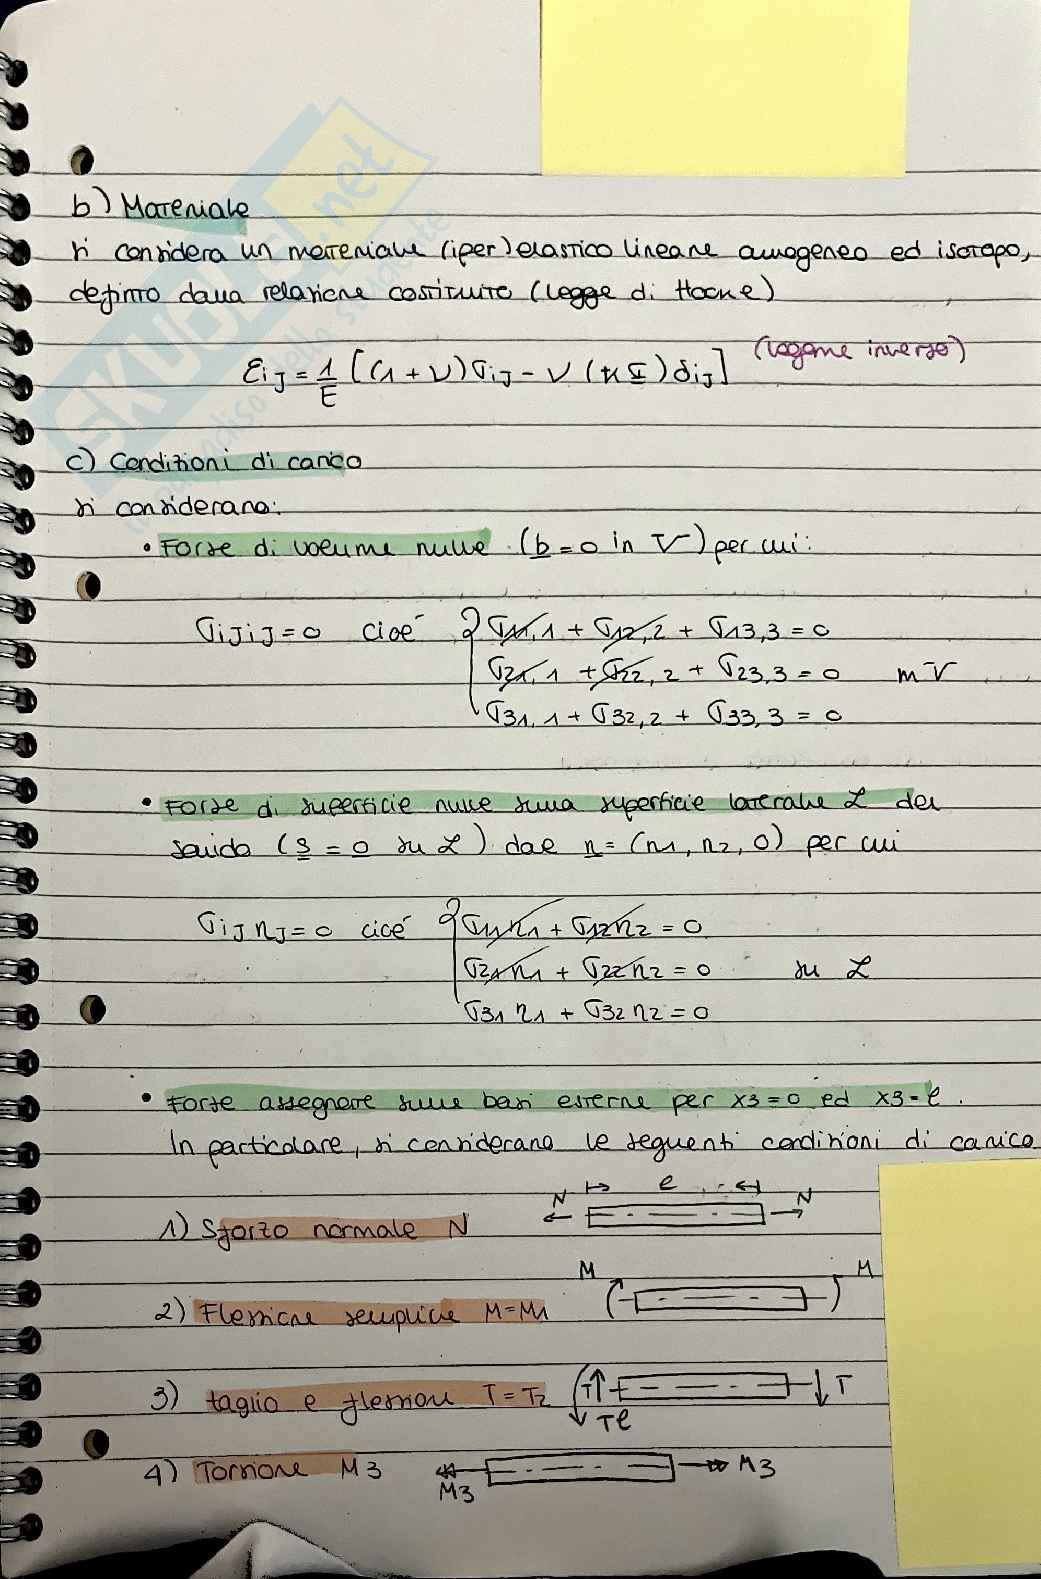 b) Materiale
si considera un materiale (iper)elastico lineare omogeneo ed isotopo,
definito dalla relazione costitutiva (legge di Hooke)
εij = 1/E [(1+ν)σij - ν (tr σ) δij] (legame inverso)
c) Condizioni di carico
si considerano:
• Forze di volume nulle (b=0 in V) per cui:
σij,j=0 cioè { σ11,1 + σ12,2 + σ13,3 = 0
σ21,1 + σ22,2 + σ23,3 = 0 in V
σ31,1 + σ32,2 + σ33,3 = 0
• Forze di superficie nulle sulla superficie laterale L del
solido (s = 0 su L) dove n = (n1, n2, 0) per cui
σij nj=0 cioè { σ11n1 + σ12n2 = 0
σ21n1 + σ22n2 = 0 su L
σ31 n1 + σ32 n2 = 0
• Forze assegnate sulle basi esterne per x3=0 ed x3=l.
In particolare, si considerano le seguenti condizioni di carico
1) Sforzo normale N N l N
2) Flessione semplice M=M1 M M
3) taglio e flessione T=T2 T Tl T
4) Torsione M3 M3 M3
SKUOLA.net